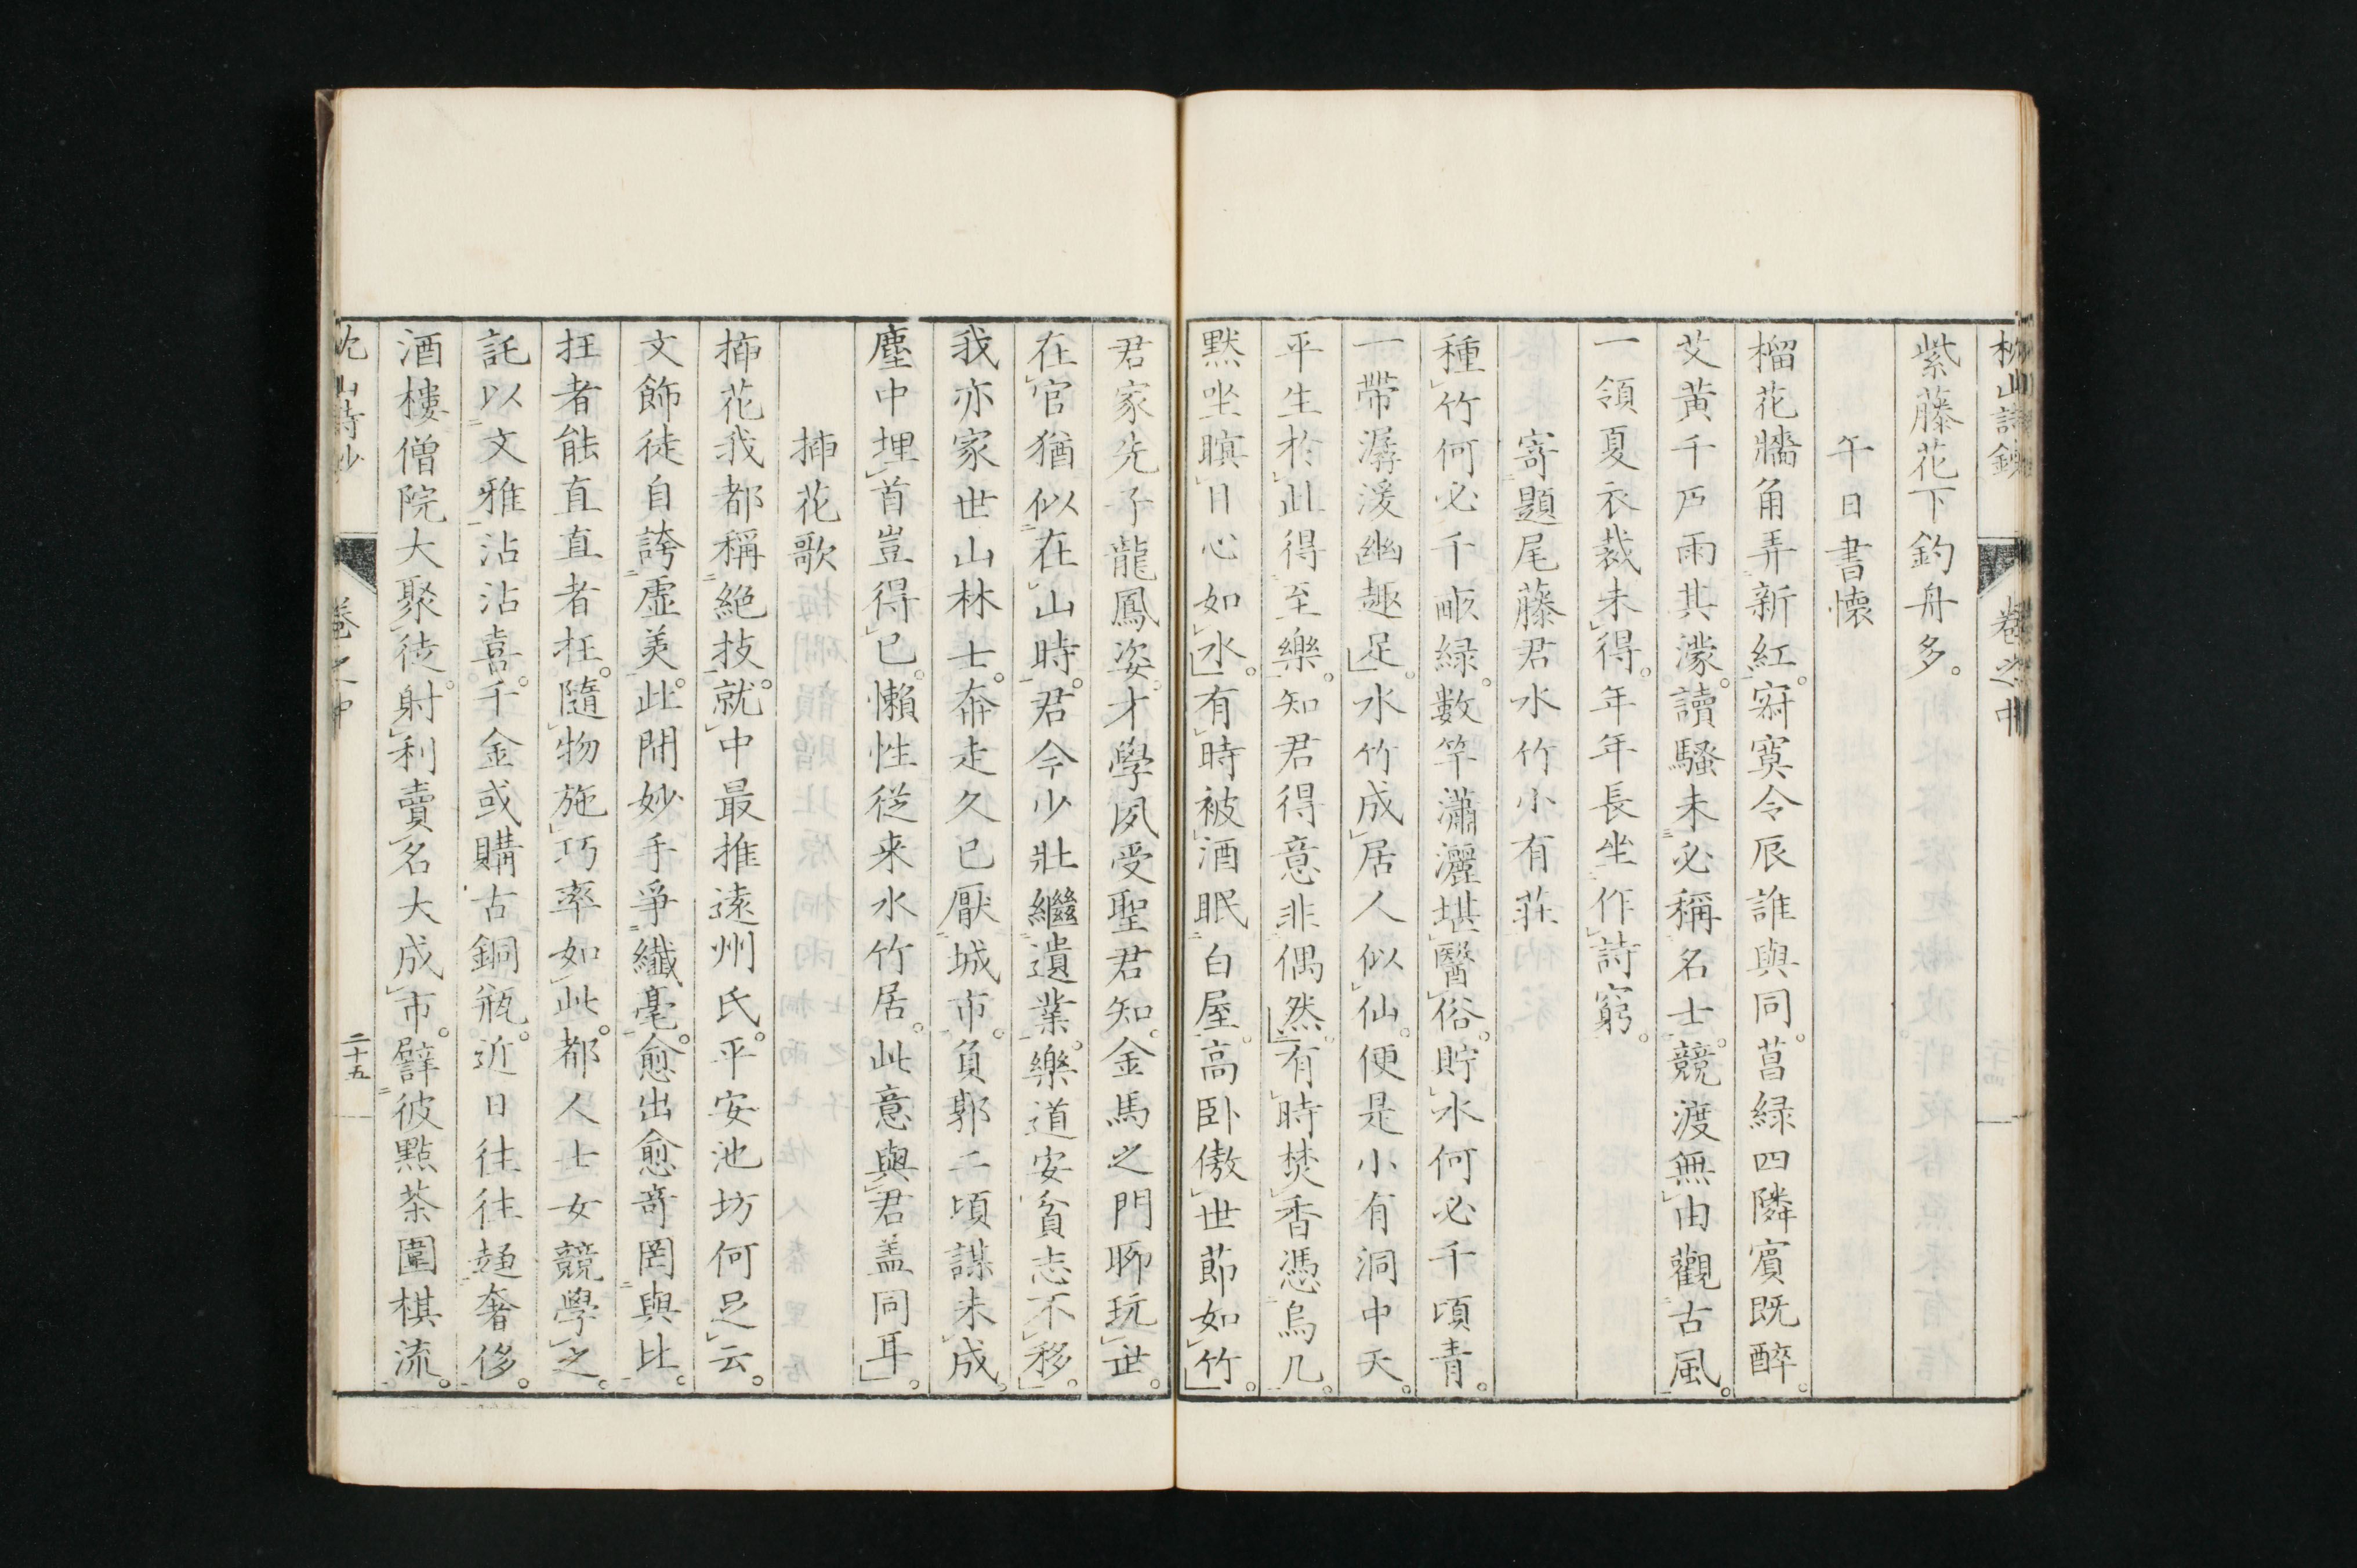 紫藤花下釣舟多。
午日書懷
榴花牆角弄新紅。寂寞令辰誰與同。菖緑四隣賓既醉。
艾黃千戸雨其濛。讀騷未必稱名士。競渡無由觀古風。
一領夏衣裁未得。年年長坐作詩窮。
寄題尾藤君水竹小有莊
種竹何必千畝緑。數竿瀟灑堪醫俗。貯水何必千頃青。
一帶潺湲幽趣足。水竹成居人似仙。便是小有洞中天。
平生於此得至樂。知君得意非偶然。有時焚香憑烏几。
默坐瞑目心如水。有時被酒眠白屋。高卧傲世節如竹。
君家先子龍鳳姿。才學夙受聖君知。金馬之門聊玩世。
在官猶似在山時。君今少壯繼遺業。樂道安貧志不移。
我亦家世山林士。奔走久已厭城市。負郭二頃謀未成。
塵中埋首豈得已。懶性從来水竹居。此意與君盖同耳。
插花歌
插花我都稱絶技。就中最推遠州氏。平安池坊何足云。
文飾徒自誇虛美。此間妙手爭纖毫。愈出愈奇罔與比。
枉者能直直者枉。隨物施巧率如此。都人士女競學之。
託以文雅沾沾喜。千金或購古銅瓶。近日往往趨奢侈。
酒樓僧院大聚徒。射利賣名大成市。譬彼點茶圍棋流。
卷之中
二十五